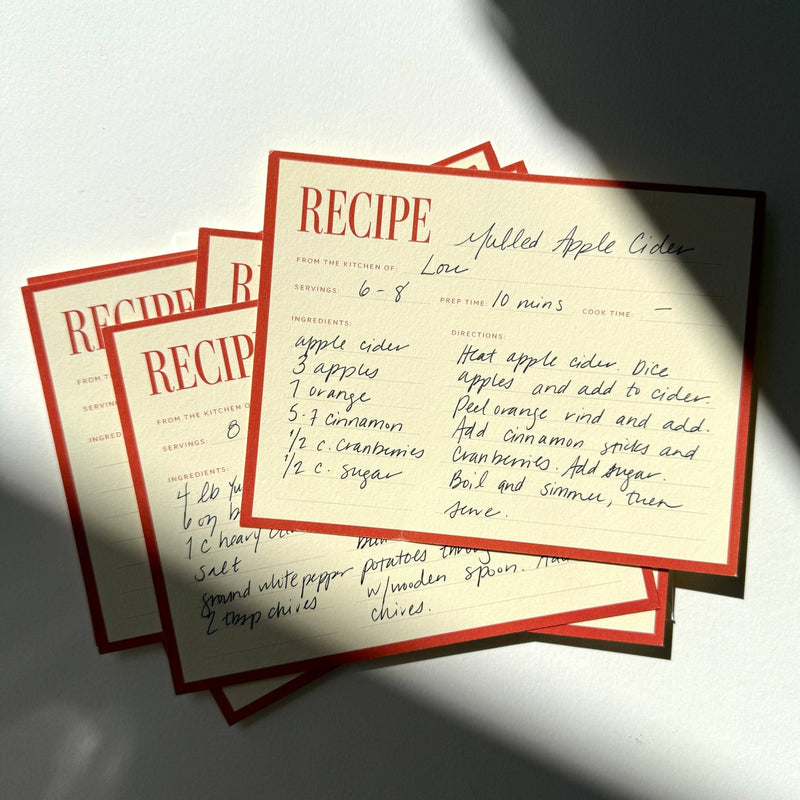 RECIPE Mulled Apple Cider
FROM THE KITCHEN OF: Lou
SERVINGS: 6-8 PREP TIME: 10 mins COOK TIME: —
INGREDIENTS:
apple cider
3 apples
1 orange
5-7 cinnamon
1/2 c. cranberries
1/2 c. sugar
DIRECTIONS:
Heat apple cider. Dice
apples and add to cider.
Peel orange rind and add.
Add cinnamon sticks and
cranberries. Add sugar.
Boil and simmer, then
serve.
RECIP
FROM THE KITCHEN O
SERVINGS: 8
INGREDIENTS:
4 lb Yu
6 oz b
1 c heavy
salt
ground white pepper
2 tbsp chives
potatoes
w/wooden spoon.
chives.
RECIPE
FROM T
SERVIN
INGRED
RE